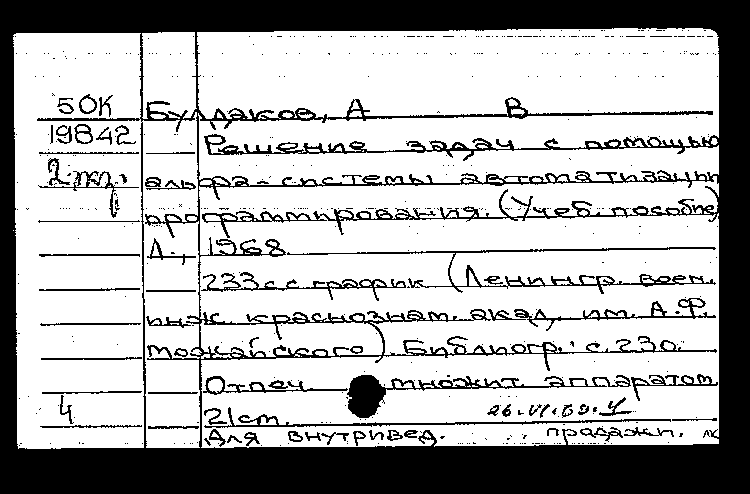 50К Булдаков, А В
19842 Решение задач с помощью
2 экз. альфа-системы автоматизации
программирования. (Учеб. пособие)
Л., 1968
233 с с график (Ленингр. воен.
инж. краснознам. акад. им. А.Ф.
Можайского). Библиогр.: с. 230.
Отпеч. множит. аппаратом
4 21 cm.
Для внутривед. продажи.